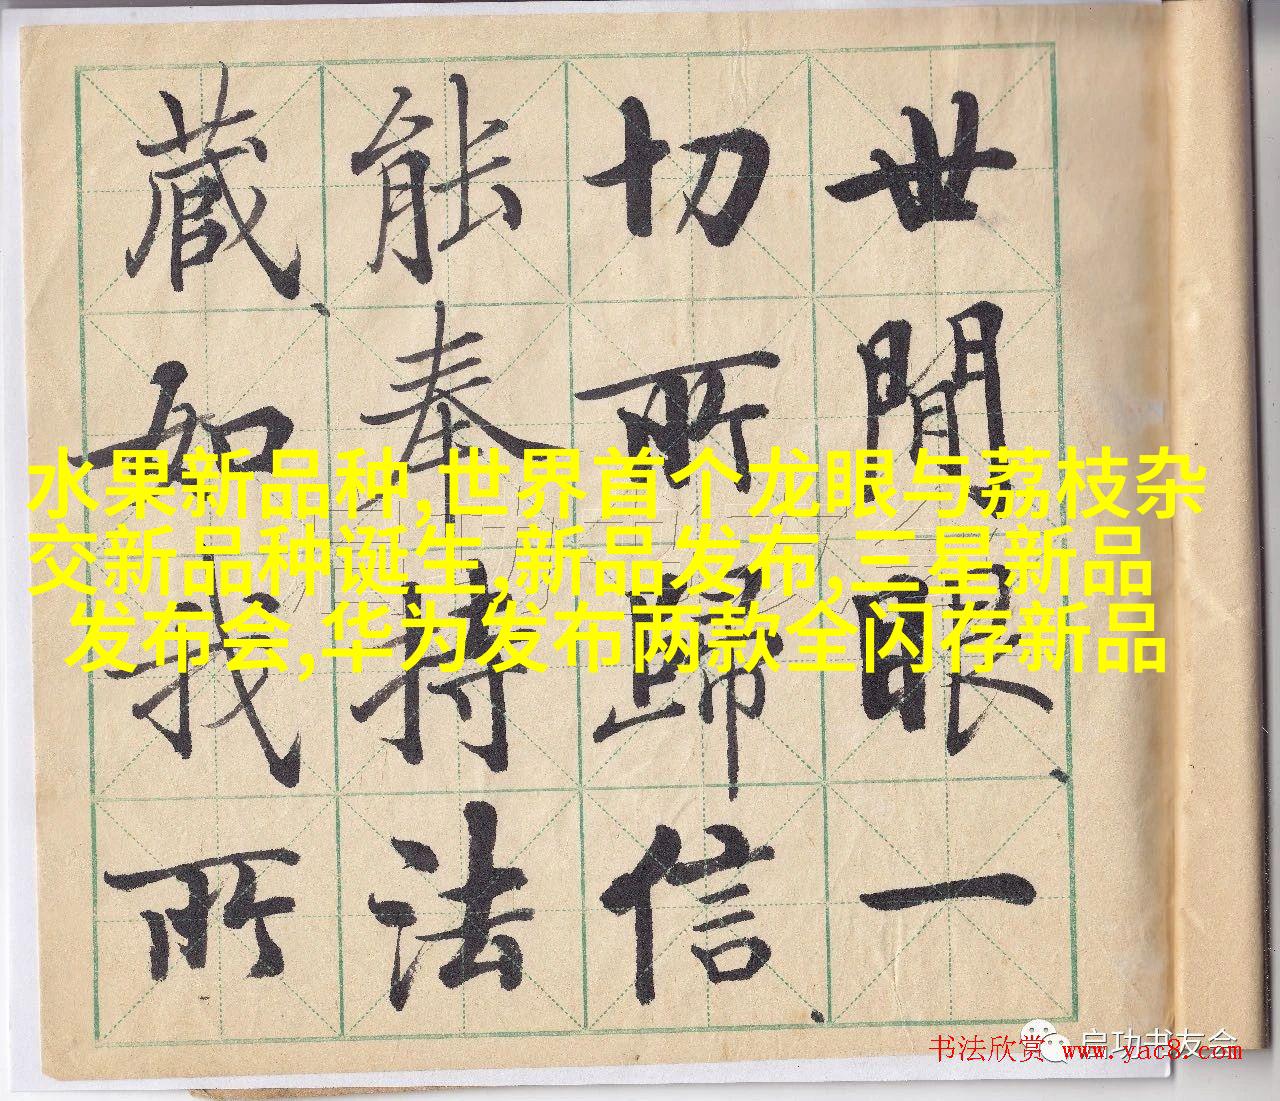 世閒眼一
切所歸信
能奉持法
藏如我所
水果新品种,世界首个龙眼与荔枝杂
交新品种诞生,新品发布,三星新品
发布会,华为发布两款全闪存新品
启功书友会
书法欣赏 www.yac8.com